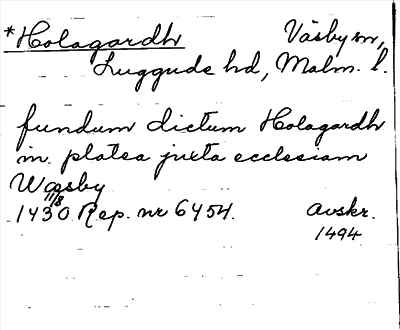 *Holagardh Väsby sn,
Luggude hd, Malm. l.
fundum dictum Holagardh
in platea juxta ecclesiam
Wæsby
11/8
1430 Rep. nr 6454. Avskr.
1494